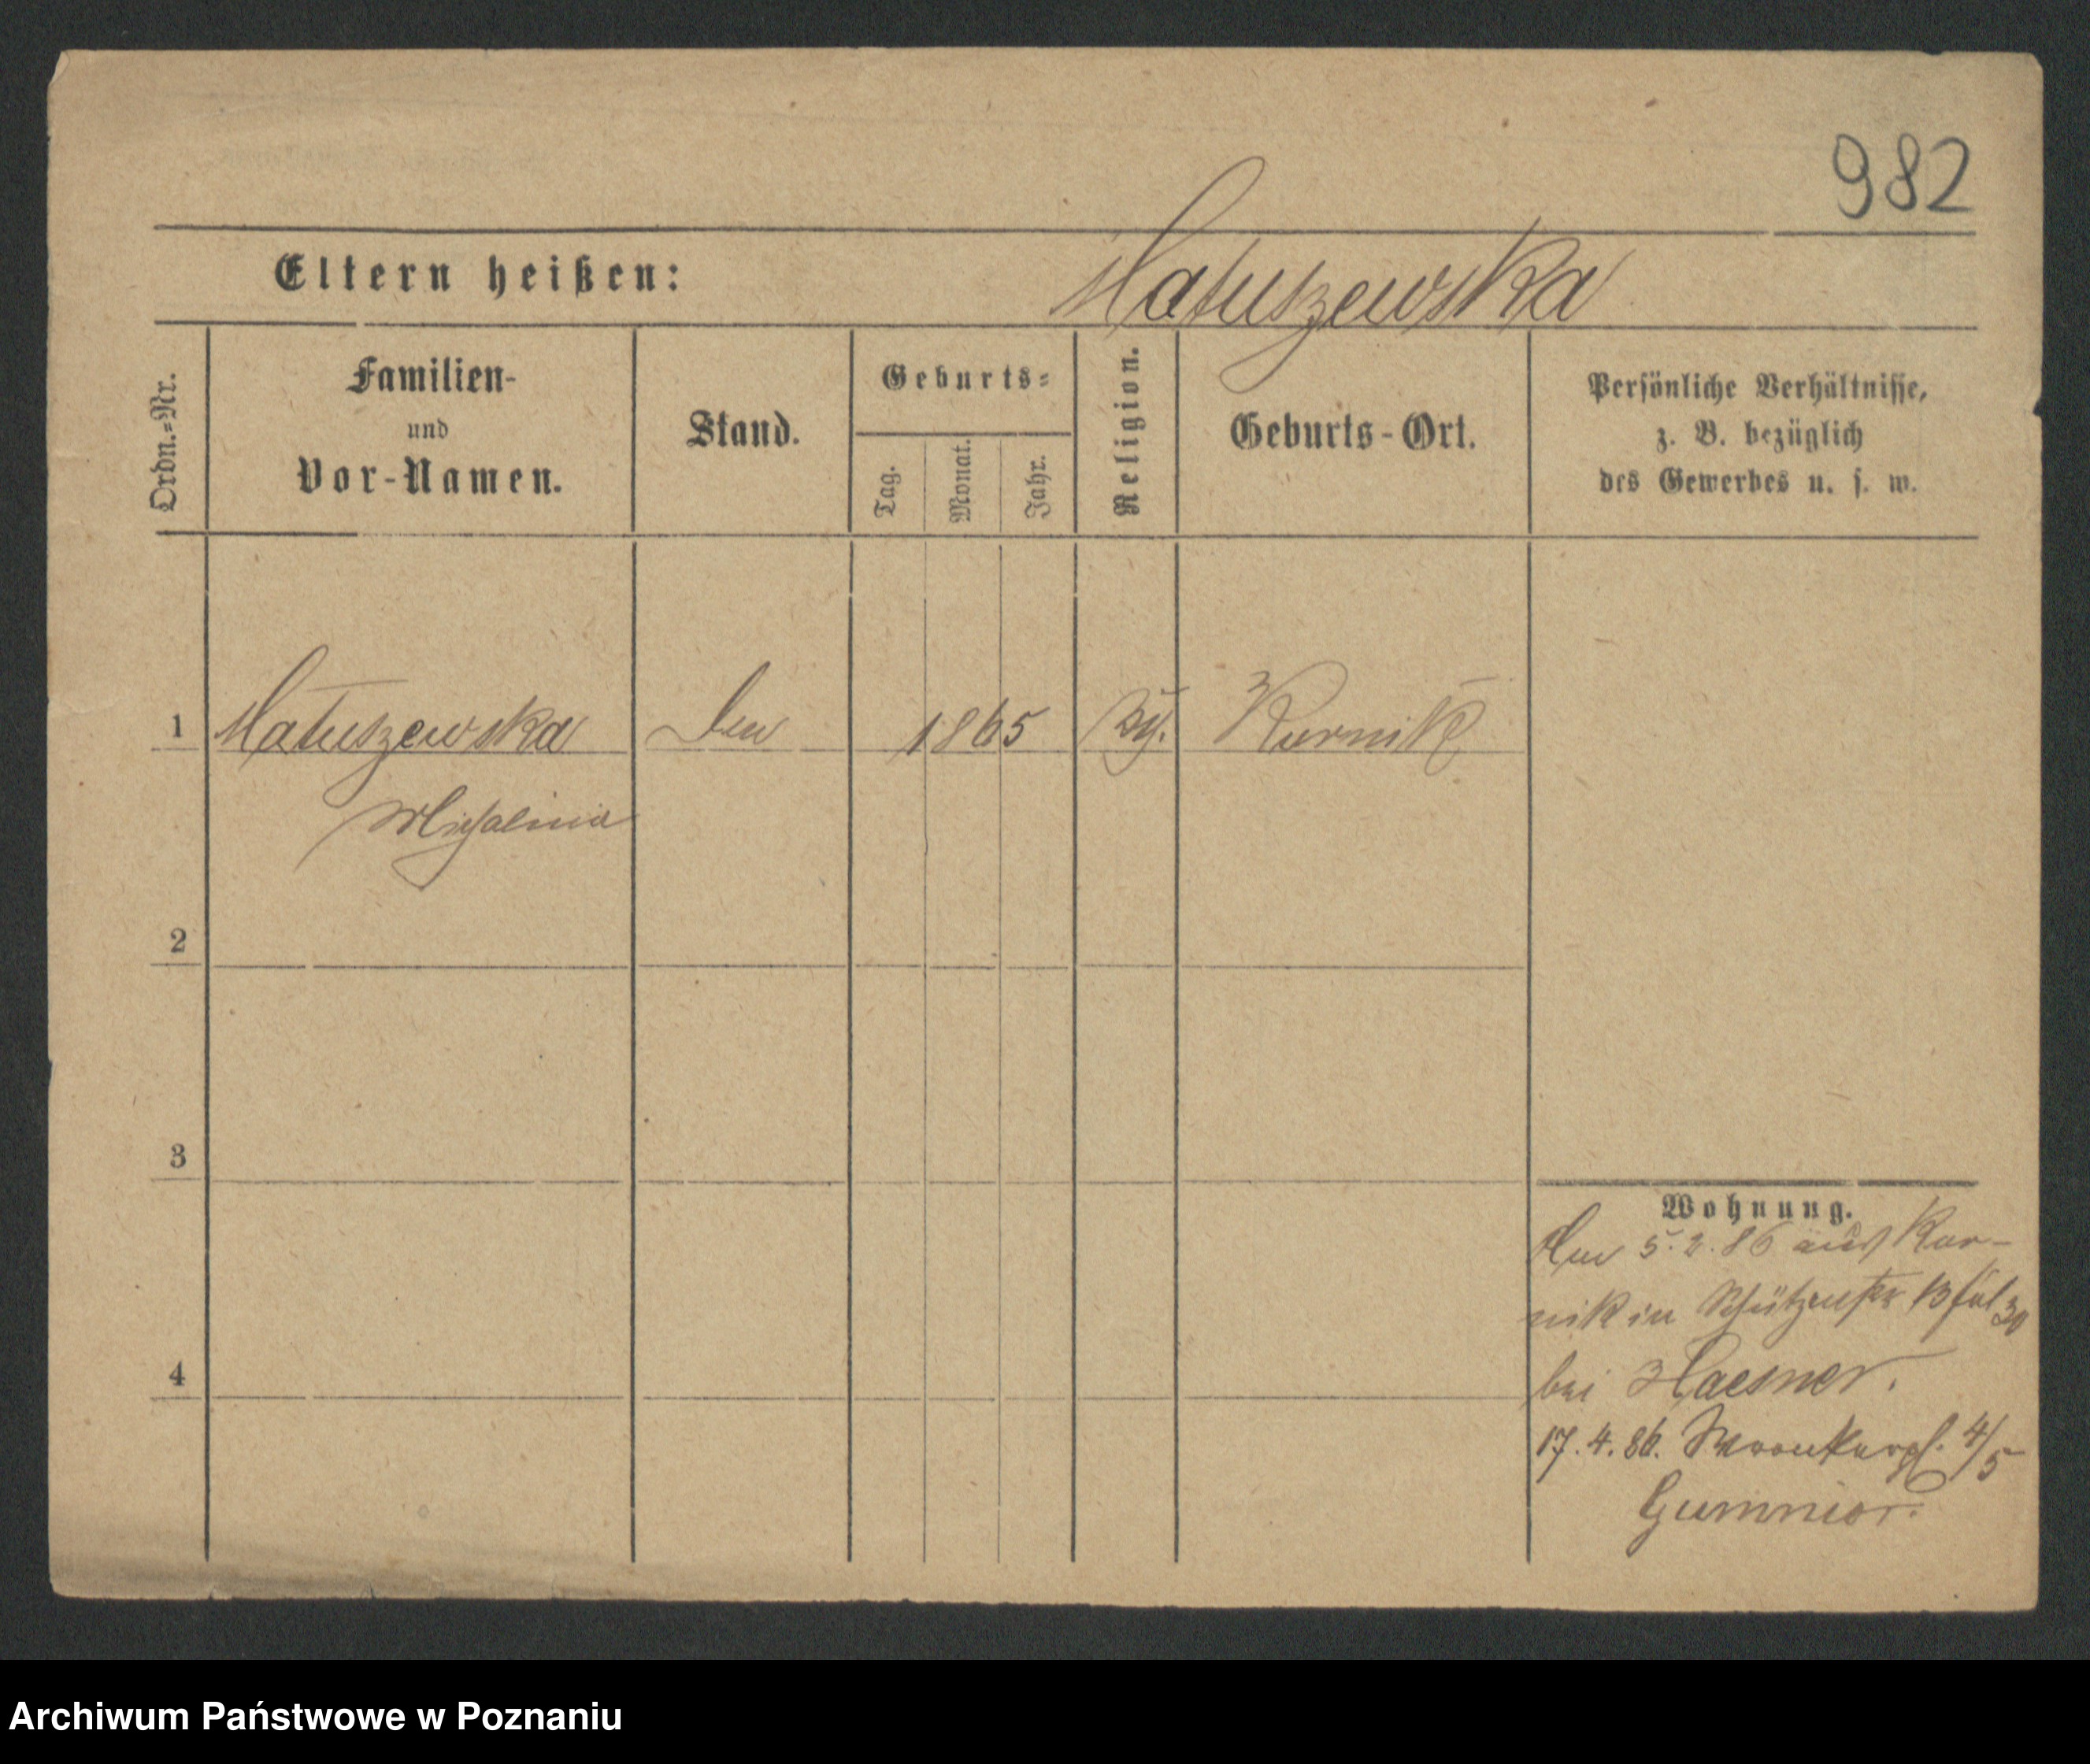 982
Eltern heißen: Matuszewska
Ordn.-Nr.
Familien-
und
Vor-Namen.
Stand.
Geburts-
Tag.
Monat.
Jahr.
Religion.
Geburts-Ort.
Persönliche Verhältnisse,
z. B. bezüglich
des Gewerbes u. s. w.
1 Matuszewska 1865 Kurnik
Michalina
2
3
4
Wohnung.
5.2.86 aus Kur-
nik in Schützenstr 13
bei Haesner.
17.4.86. Wronkerpl. 4/5
Gumnior.
Archiwum Państwowe w Poznaniu